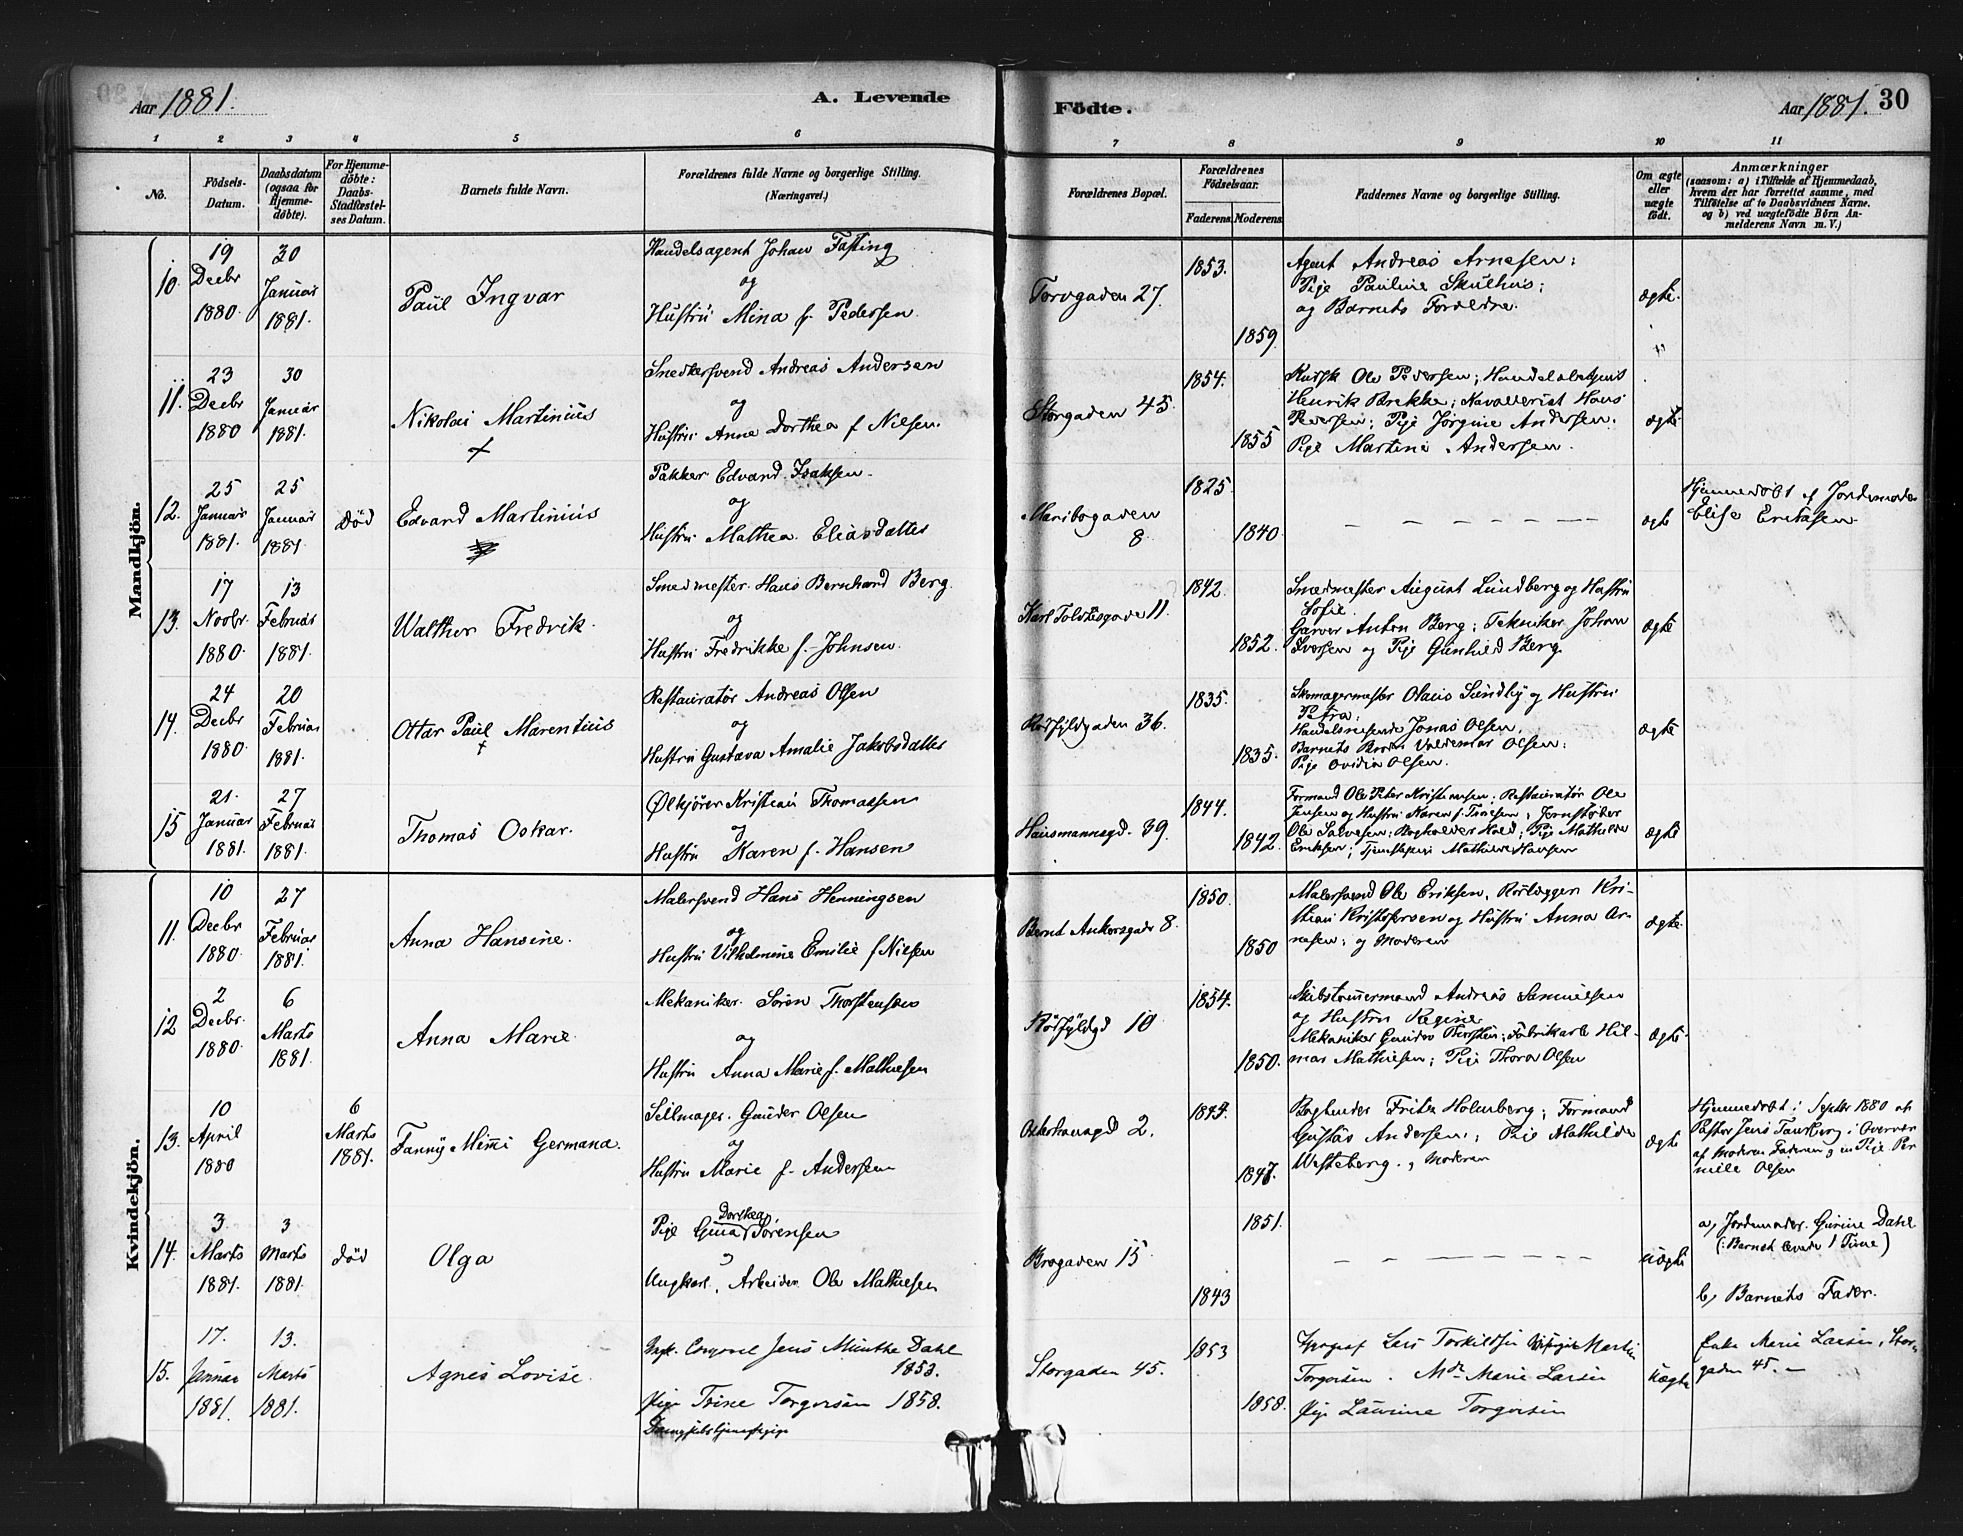 Aar 1881.
A. Levende
Födte.
Aar 1881. 30
1 2 3 4 5 6 7 8 9 10 11
No.
Födsels-
Datum.
Daabsdatum
(ogsaa for
Hjemme-
döbte).
For Hjemme-
döbte:
Daabs-
Stadfæstel-
ses Datum.
Barnets fulde Navn.
Forældrenes fulde Navne og borgerlige Stilling.
(Næringsvei.)
Forældrenes Bopæl.
Forældrenes
Födselsaar.
Faderens. Moderens.
Faddernes Navne og borgerlige Stilling.
Om ægte
eller
uægte
födt.
Anmærkninger
(saasom: a) i Tilfælde af Hjemmedaab,
hvem der har forrettet samme, med
Tilföielse af to Daabsvidners Navne.
og b) ved uægtefödte Börn An-
melderens Navn m. V.)
Mandkjön.
10.
19
Decbr
1880.
30
Januar
1881.
Paul Ingvar
Handelsagent Johan Fasting
og
Hustru Mina f. Pedersen.
Torvgaden 27.
1853.
1859.
Agent Andreas Arnesen;
Pige Pauline Skulhus;
og Barnets Forældre.
ægte.
11.
23
Decbr
1880
30
Januar
1881.
Nikolai Martinius
+
Snedkersvend Andreas Andersen
og
Hustru Anne Dorthea f. Nielsen.
Storgaden 45.
1854.
1855
Kudsk Ole Pedersen; Handelsbetjent
Henrik Brekke; Kavallerist Hans
Pedersen; Pige Jörgine Andersen.
Pige Martine Andersen.
ægte.
12.
25
Januar
1881.
25
Januar
1881.
död
Edvard Martinius
Pakker Edvard Isaksen.
og
Hustru Mathea Eliasdatter
Maribogaden
8.
1825.
1840.
ægte
Hjemmedöbt af Jordemoder
Elise Eriksen.
13.
17
Novbr.
1880.
13
Februar
1881.
Walther Fredrik.
Smedmester Hans Bernhard Berg.
og
Hustru Fredrikke f. Johnsen.
11.
1842.
1852.
Smedmester August Lundberg og Hustru
Sofie.
Garver Anton Berg; Tekniker Johan
Iversen og Pige Gunhild Berg.
ægte
14.
24
Decbr
1880.
20
Februar
1881.
Ottar Paul Marentius
+
Restauratör Andreas Olsen
og
Hustru Gustava Amalie Jakobsdatter
Rödfyldgaden 36.
1835.
1835.
Skomagermester Olaus Sundby og Hustru
Petra;
Handelsreisende Jonas Olsen,
Barnets Broder Valdemar Olsen;
Pige Ovidia Olsen.
ægte
15
21.
Januar
1881.
27
Februar
1881.
Thomas Oskar.
Ølkjörer Kristian Thomassen
og
Hustru Karen f. Hansen
Hausmannsgd. 39.
1844.
1842.
Formand Ole Peter Kristiansen; Restauratör Ole
Jensen og Hustru Karen f. ; Jernstöber
Ole Salvesen; Bogholder ; Pige Mathilde
Eriksen; Tjenestepige Mathilde Hansen
ægte
Kvindekjön.
11.
10
Decbr
1880.
27
Februar
1881.
Anna Hansine.
Malersvend Hans Henningsen
og
Hustru Vilhelmine Emilie f Nielsen
Bernt Ankersgade 8.
1850.
1850
Malersvend Ole Eriksen, Rörlægger Kri-
stian Kristofersen og Hustru Anna Ar-
nesen; og Moderen
ægte.
12
2
Decbr.
1880.
6
Marts
1881.
Anna Marie.
Mekaniker Sören Thorstensen
og
Hustru Anna Marie f. Mathiesen
Rödfyldgd 10
1854.
1850.
Skibstömmermand Andreas Samuelsen
og Hustru Regine
Mekaniker Gunder Thorsten; Fabrikarb Hil-
mar Mathiesen; Pige Thora Olsen
ægte.
13.
10
April
1880
6
Marts
1881.
Fanny Mimi Germana.
Seilmager Gunder Olsen
og
Hustru Marie f. Andersen
Osterhausgd 2.
1844.
1847.
Bogbinder Fritz Holmberg; Formand
Gustav Andersen; Pige Mathilde
Westeberg. , Moderen
ægte
Hjemmedöbt i Septbr 1880 af
Pastor Jens Tandberg i Overvær
af Moderen Faderen og en Pige Per
nille Olsen
14.
3.
Marts
1881.
3
Marts
1881.
död
Olga
Pige Gina Dorthea Sörensen
Ungkarl, Arbeider Ole Mathiesen
Brogaden 15
1851.
1843
uægte
a, Jordemoder Gurine Dahl
(: Barnet levede 1 Time)
b, Barnets Fader.
15.
17.
Januar
1881.
13.
Marts
1881.
Agnes Lovise.
Ungk. Jens Munthe Dahl
1853.
Pige Trine Torgersen 1858.
Storgaden 45.
1853
1858.
Typograf Lars Torkildsen Martin
Torgersen. Mde Marie Larsen
Pige Laurine Torgersen
uægte
Enke Marie Larsen, Stor-
gaden 45.